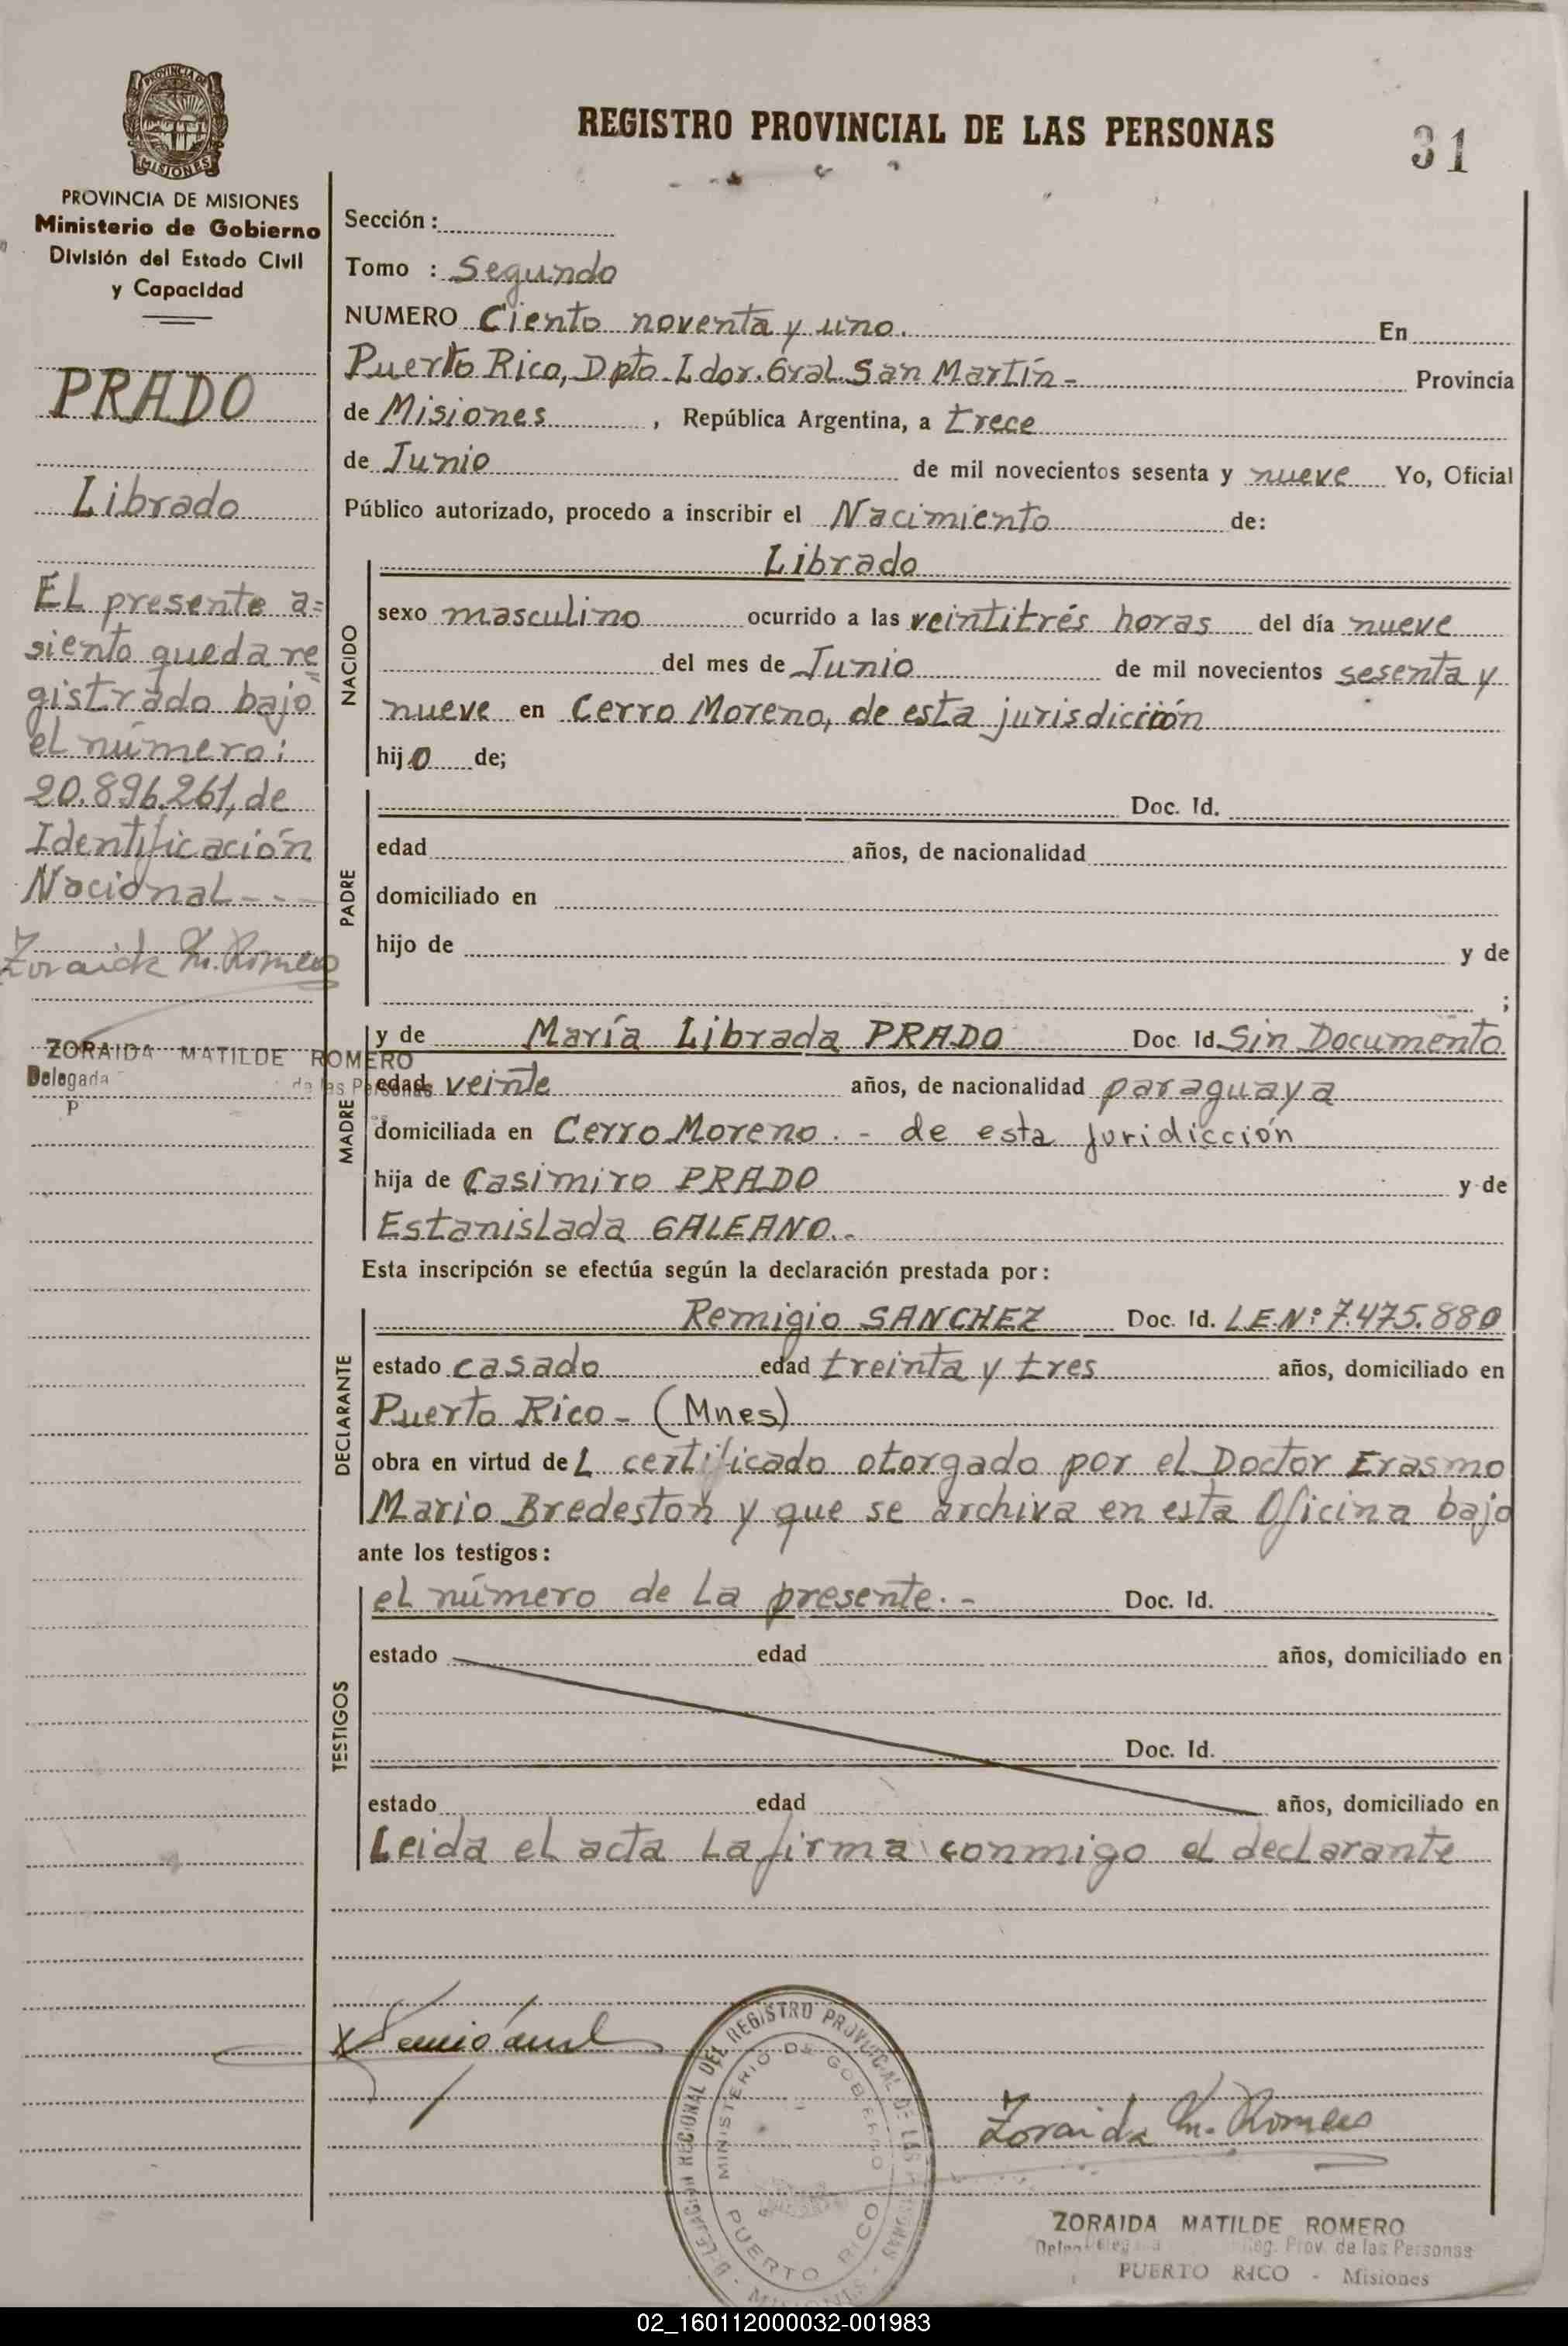 REGISTRO PROVINCIAL DE LAS PERSONAS
31
PROVINCIA DE MISIONES
MISIONES
PROVINCIA DE MISIONES
Ministerio de Gobierno
División del Estado Civil
y Capacidad
PRADO
Librado
EL presente a=
siento queda re=
gistrado bajo
el número:
20.896.261, de
Identificación
Nacional - - -
Zoraida M. Romero
ZORAIDA MATILDE ROMERO
Delegada de las Personas
Sección:
Tomo : Segundo
NUMERO Ciento noventa y uno. En
Puerto Rico, Dpto. Ldor. Gral. San Martín - Provincia
de Misiones , República Argentina, a trece
de Junio de mil novecientos sesenta y nueve Yo, Oficial
Público autorizado, procedo a inscribir el Nacimiento de:
NACIDO
Librado
sexo masculino ocurrido a las veintitrés horas del día nueve
del mes de Junio de mil novecientos sesenta y
nueve en Cerro Moreno, de esta jurisdicción
hijo de;
PADRE
Doc. Id.
edad años, de nacionalidad
domiciliado en
hijo de y de
;
MADRE
y de María Librada PRADO Doc. Id. Sin Documento
edad veinte años, de nacionalidad paraguaya
domiciliada en Cerro Moreno. - de esta juridicción
hija de Casimiro PRADO y de
Estanislada GALEANO..
Esta inscripción se efectúa según la declaración prestada por:
DECLARANTE
Remigio SANCHEZ Doc. Id. L.E.Nº 7.475.880
estado casado edad treinta y tres años, domiciliado en
Puerto Rico - (Mnes)
obra en virtud deL certificado otorgado por el Doctor Erasmo
Mario Bredeston y que se archiva en esta Oficina bajo
ante los testigos:
TESTIGOS
el número de La presente. - Doc. Id.
estado edad años, domiciliado en
Doc. Id.
estado edad años, domiciliado en
Leida el acta La firma conmigo el declarante
DELEGACION REGIONAL DEL REGISTRO PROVINCIAL DE LAS PERSONAS
MINISTERIO DE GOBIERNO
PUERTO RICO
- MISIONES -
Zoraida M. Romero
ZORAIDA MATILDE ROMERO
Delegada Reg. Prov. de las Personas
PUERTO RICO - Misiones
02_160112000032-001983